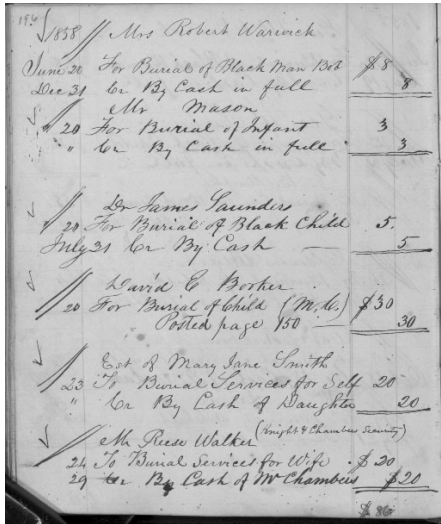 196
1858 // Mrs Robert Warwick
June 20 For Burial of Black Man Bob $8
Dec 31 Cr By Cash in full 8
Mr Mason
" 20 For Burial of Infant 3
" Cr By Cash in full 3
Dr James Saunders
20 For Burial of Black Child 5.
July 31 Cr By Cash — 5
David E Booker
20 For Burial of Child (M.C.) $30
Posted page 150 — 30
Est of Mary Jane Smith
23 To Burial Services for Self 20
" Cr By Cash of Daughter 20
Mr Reese Walker (Knight & Chambers Security)
24 To Burial Services for Wife . $20
29 Cr By Cash of Mr Chambers $20
$86